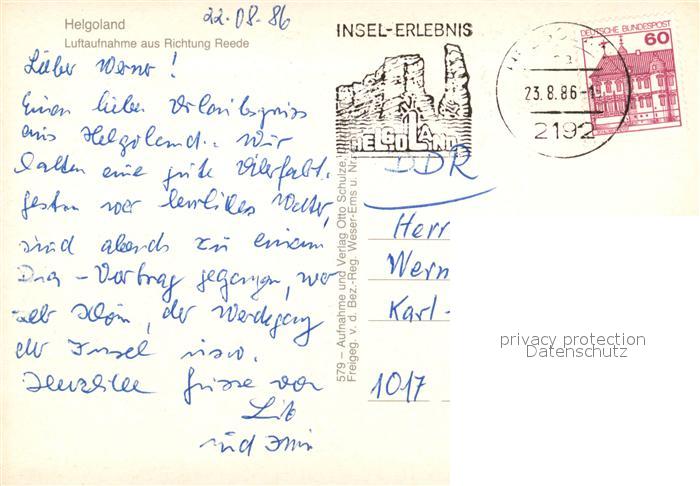 Helgoland
Luftaufnahme aus Richtung Reede
22-08-86
Lieber Werner!
Einen lieben Urlaubsgruss
aus Helgoland. Wir
hatten eine gute Überfahrt.
gestern war herrliches Wetter,
sind abends zu einem
Dia-Vortrag gegangen, war
sehr schön, der Werdegang
der Insel usw.
Herzliche Grüsse von
und
INSEL-ERLEBNIS
HELGOLAND
23.8.86-19
2192
DEUTSCHE BUNDESPOST
60
DDR
Herr
Wern
Karl-
1017
579 – Aufnahme und Verlag Otto Schulze,
Freigeg. v. d. Bez.-Reg. Weser-Ems u. Nr.
privacy protection
Datenschutz